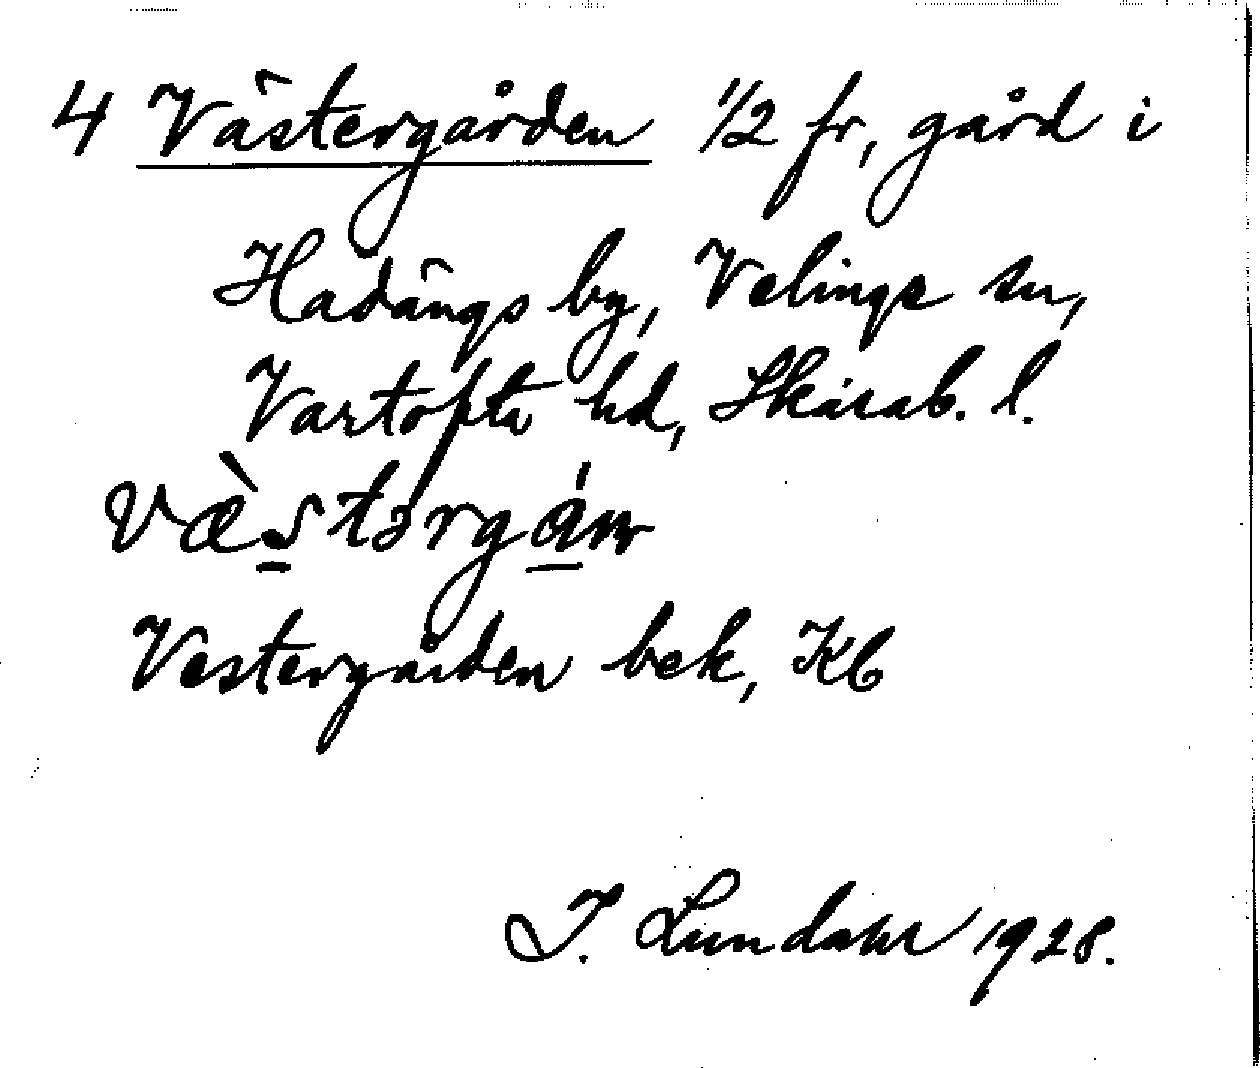 4 Västergården 1/2 fr, gård i
Hadängs by, Velinge sn,
Vartofta hd, Skarab. l.
Væ̀stərgá̱n
Vestergården bek, Kb
I. Lundahl 1928.